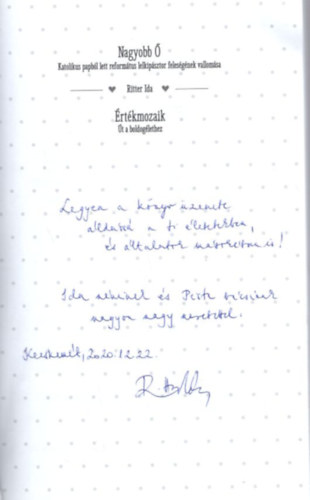 Nagyobb Ő
Katolikus papból lett református lelkipásztor feleségének vallomása
Ritter Ida
Értékmozaik
Út a boldogléthez
Legyen a könyv üzenete
áldássá a ti életetekben,
és általatok másokéban is!
Ida néninek és Pista bácsinak
nagyon nagy szeretettel.
Kecskemét, 2020.12.22.